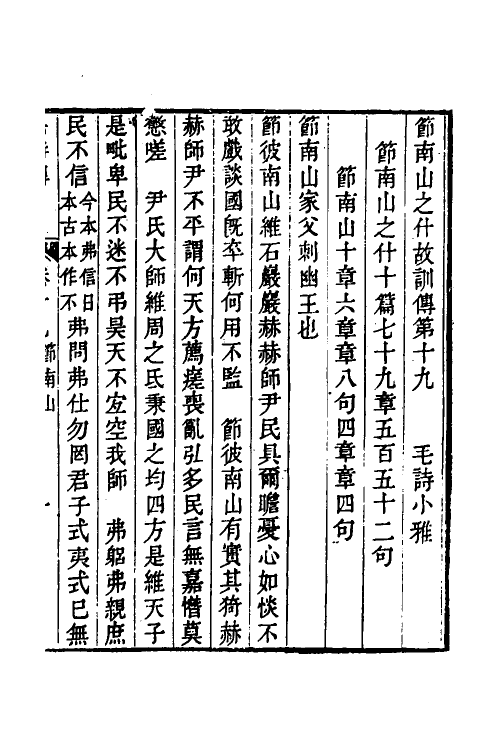 節南山之什故訓傳第十九　毛詩小雅
節南山之什十篇七十九章五百五十二句
節南山十章六章章八句四章章四句
節南山家父刺幽王也
節彼南山維石巖巖赫赫師尹民具爾瞻憂心如惔不
敢戲談國旣卒斬何用不監　節彼南山有實其猗赫
赫師尹不平謂何天方薦瘥喪亂弘多民言無嘉憯莫
懲嗟　尹氏大師維周之氐秉國之均四方是維天子
是毗卑民不迷不弔昊天不宜空我師　弗躬弗親庶
民不信今本弗信日本古本作不弗問弗仕勿罔君子式夷式已無
節南山